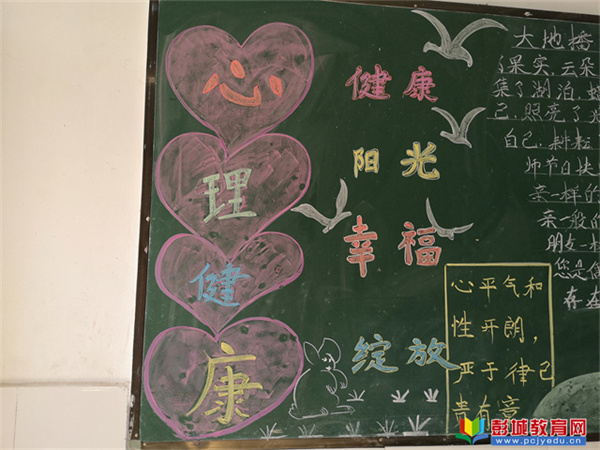 心
理
健
康
健康
阳光
幸福
绽放
心平气和
性开朗，
严于律己
贵有
大地播
果实，云朵
了湖泊，
己，照亮了
自己，耕耘
师节日快
亲一样的
亲一般的
朋友一
您是
存在
彭城教育网
www.pcjyedu.cn